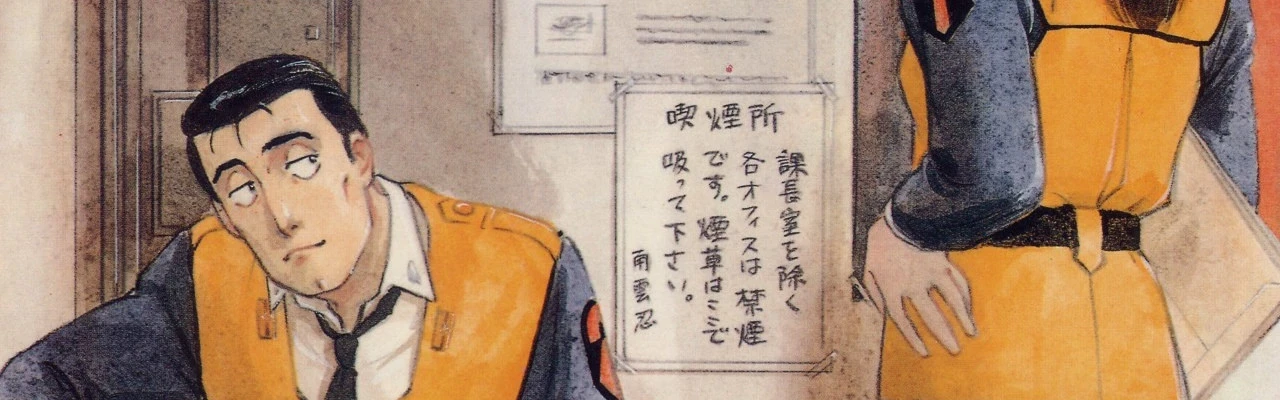 喫煙所
課長室を除く
各オフィスは禁煙
です。煙草はここで
吸って下さい。
南雲忍